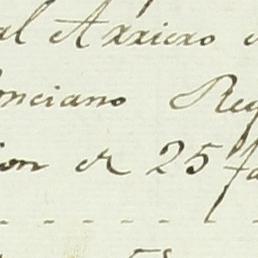 al Arriero
onciano Reg
ion de 25 fa